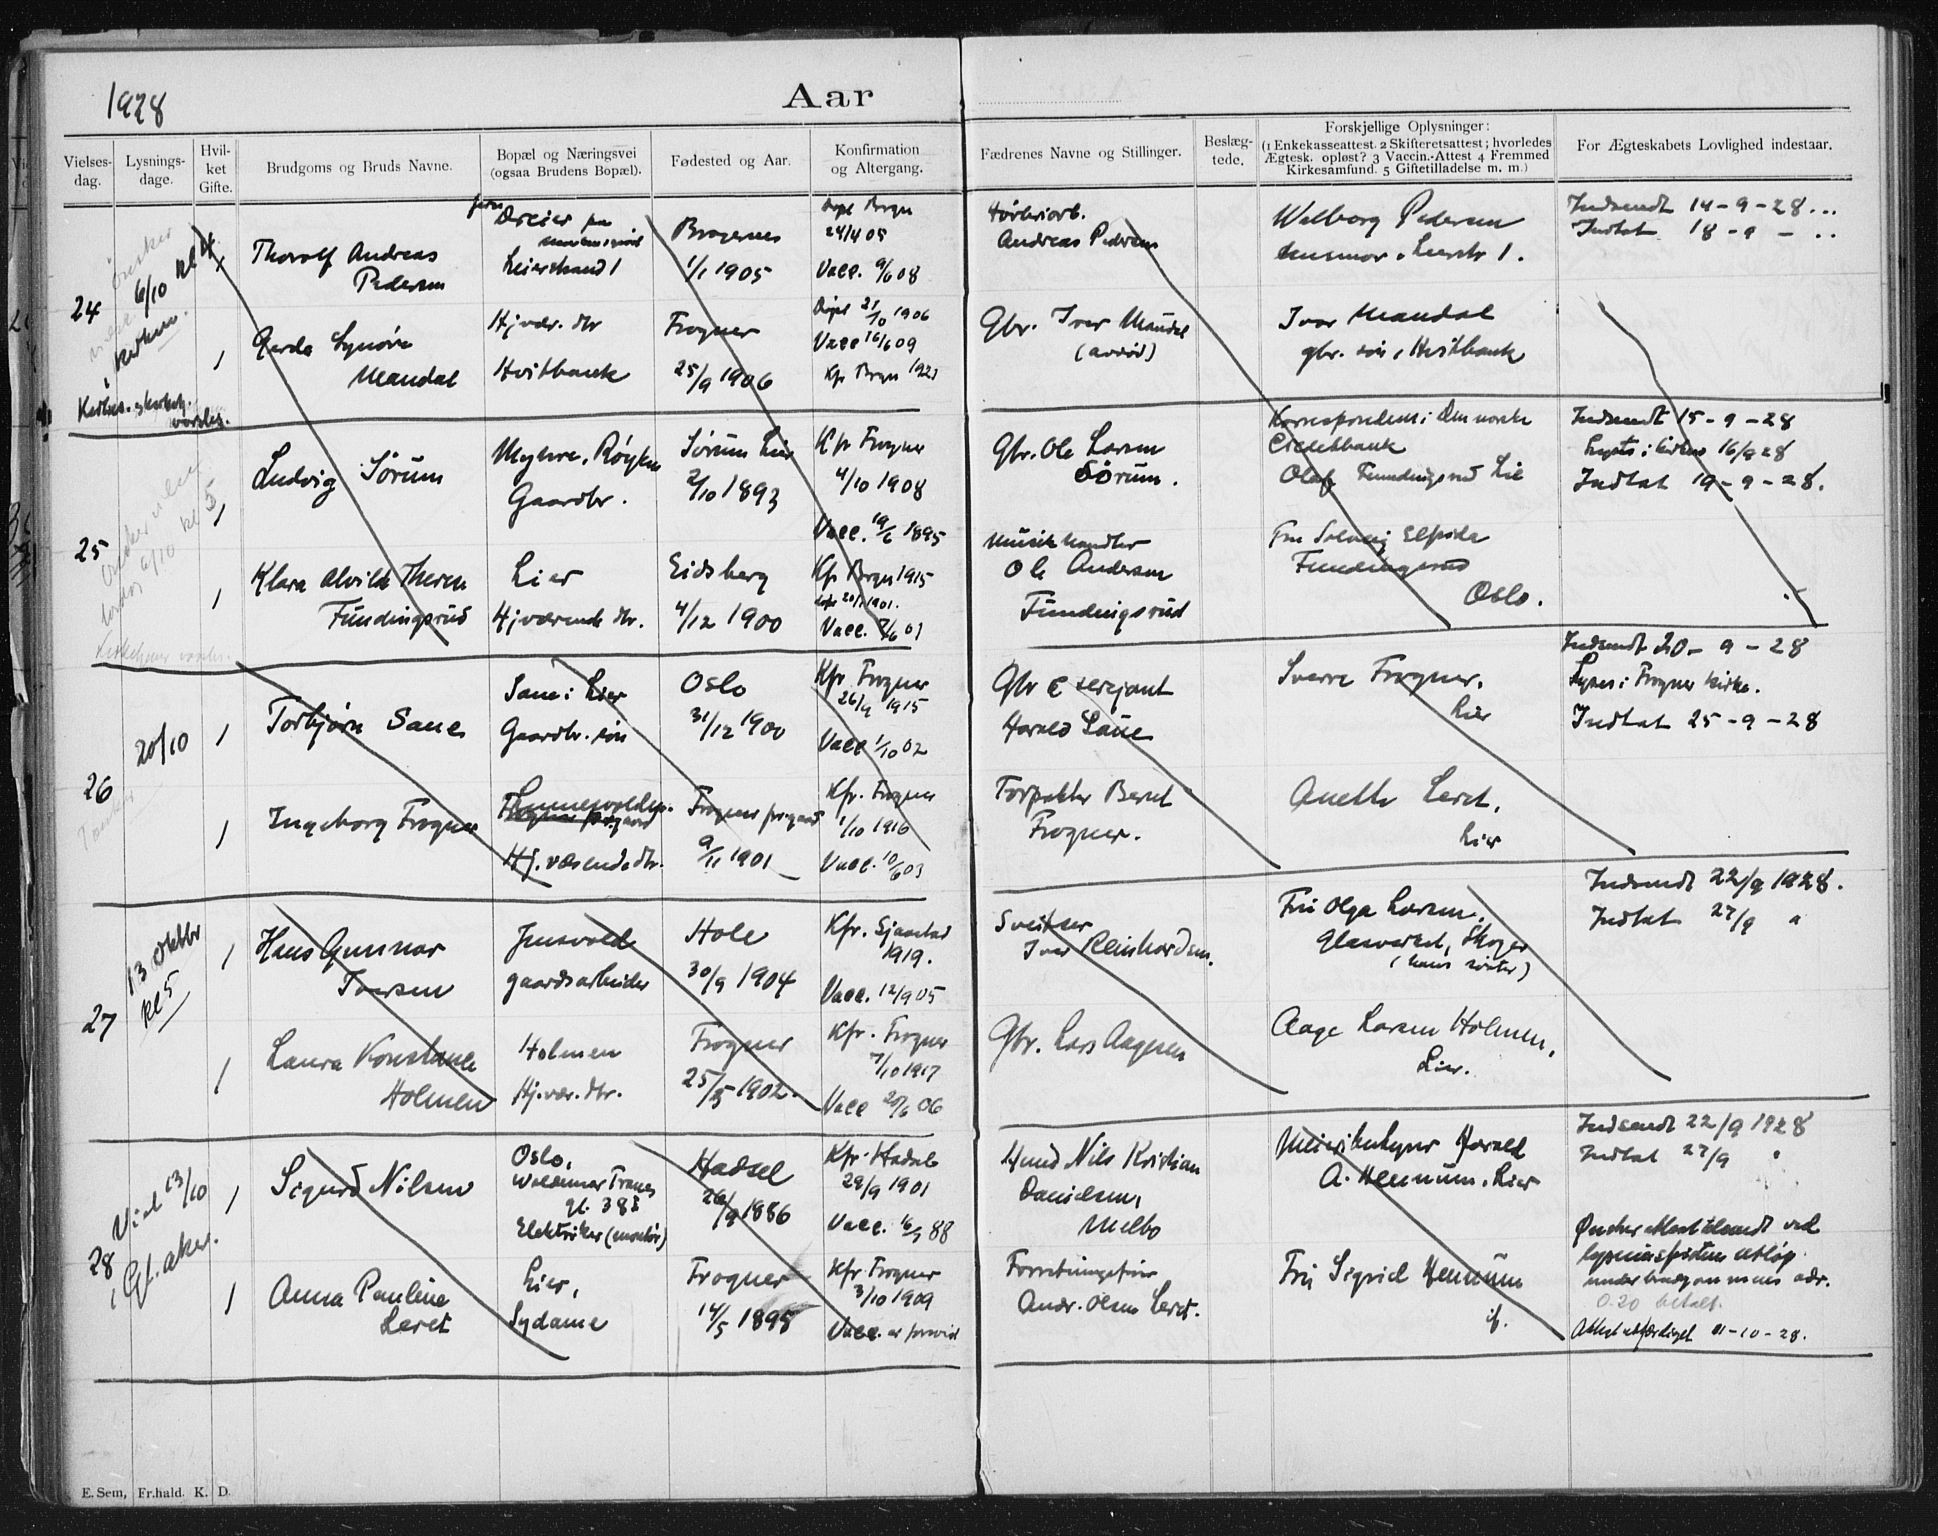 1928
Aar
Vielses-dag.
Lysnings-dage.
Hvil-ket Gifte.
Brudgoms og Bruds Navne.
Bopæl og Næringsvei
(ogsaa Brudens Bopæl).
Fødested og Aar.
Konfirmation
og Altergang.
Fædrenes Navne og Stillinger.
Beslæg-tede.
Forskjellige Oplysninger:
(1 Enkekasseattest. 2 Skifteretsattest; hvorledes
Ægtesk. opløst? 3 Vaccin.-Attest 4 Fremmed
Kirkesamfund. 5 Giftetilladelse m. m.)
For Ægteskabets Lovlighed indestaar.
24
ønsker
6/10 kl 4
1
Thorolf Andreas
Pedersen
Dreier paa
Lierstrand 1
Bragernes
1/1 1905
Døpt Bragn
24/4 05
Vacc. 9/6 08
Andreas Pedersen
Walborg Pedersen
Lierstr 1.
Indsendt 14-9-28
Indtat 18-9 -
1
Gerda Synøve
Mandal
Hjvær. dtr
Hvitbank
Frogner
25/9 1906
Døpt 21/10 1906
Vacc 16/6 09
Kfr Bragn 1921
Gbr. Iver Mandal
(avdød)
Ivar Mandal
gbr. søn, Hvitbank
25
1
Ludvig Sørum
Myhre, Røyken
Gaardbr.
Sørum Lier
2/10 1893
Kfr Frogner
4/10 1908
Vacc. 19/6 1895
Gbr. Ole Larsen
Sørum.
Korrespondent i Den norske
Creditbank
Olaf Fundingsrud Lie
Indsendt 15-9-28
Lyst i kirken 16/9 28
Indtat 19-9-28.
6/10 kl 5
1
Klara Alvilde Therese
Fundingsrud
Lier
Hjværende dtr.
Eidsberg
4/12 1900
Kfr Bragn 1915
Døpt 20/1 1901.
Vacc. 2/6 01
Musikhandler
Ole Andersen
Fundingsrud
Fru Solveig
Fundingsrud
Oslo.
26
20/10
1
Torbjørn Saue
Saue i Lier
Gaardbr. søn
Oslo
31/12 1900
Kfr. Frogner
26/9 1915
Vacc 1/10 02
Gbr & serjant
Harald Saue
Sverre Frogner.
Lier
Indsendt 20-9-28
Lyses i Frogner kirke.
Indtat 25-9-28
1
Ingeborg Frogner
Hj. værende dtr.
Frogner prgaard
9/11 1901
Kfr. Frogner
1/10 1916
Vacc. 10/6 03
Forpakter Bernt
Frogner.
Anette Leret,
Lier
27
13 oktbr
kl 5
1
Hans Gunnar
Iversen
Jensvold
gaardsarbeider
Hole
30/9 1904
Kfr. Sjaastad
1919.
Vacc. 12/9 05
Sveitser
Iver Reinhardsen.
Fru Olga Larsen,
Glasverket, Skoger
(hans søster)
Indsendt 22/9 1928.
Indtat 27/9 "
1
Laura Konstanse
Holmen
Holmen
Hj.vær. dtr.
Frogner
25/5 1902.
Kfr. Frogner
7/10 1917
Vacc 20/6 06
Gbr. Lars Aagesen
Aage Larsen Holmen,
Lier.
28
Viet 13/10
i Gl. Aker.
1
Sigurd Nilsen
Oslo,
Waldemar Tranes
gt. 38I
Elektriker (montør)
Hadsel
26/9 1886
Kfr. Hadsel
29/9 1901
Vacc. 16/7 88
Nils Kristian
Danielsen,
Melbo
Meieribestyrer Harald
A. Hennum, Lier
Indsendt 22/9 1928
Indtat 27/9 "
1
Anna Pauline
Leret
Lier,
Sydame
Frogner
14/5 1895
Kfr. Frogner
3/10 1909
Vacc. er forevist
Forretningsfører
Andr. Olsen Leret.
Fru Sigrid Hennum
if.
Ønsker attest tilsendt ved
lysningsfristens utløp
under brudgommens adr.
0.20 betalt.
Attest utfærdiget 11-10-28.
E. Sem, Fr.hald. K. D.